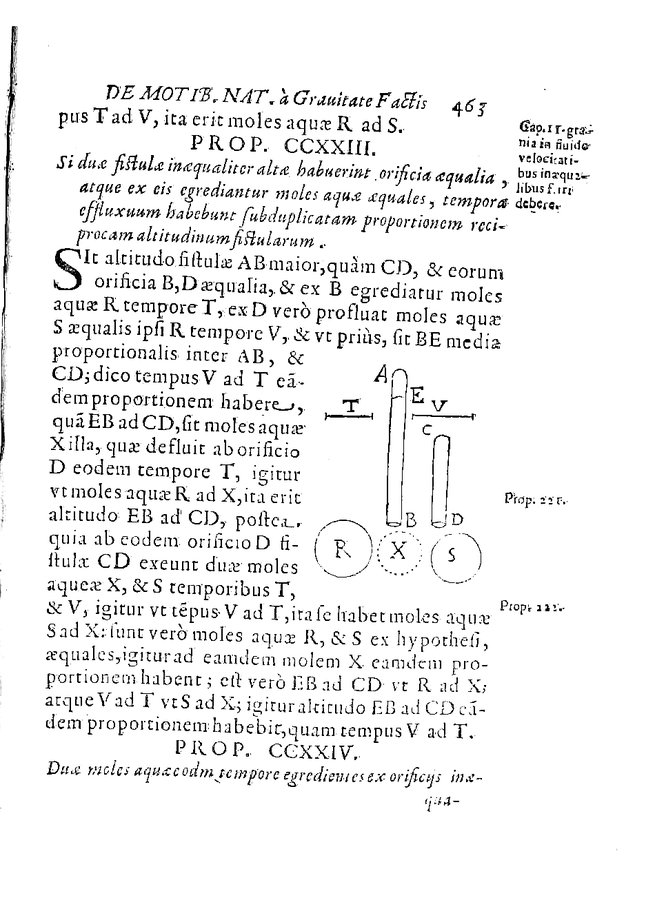 DE MOTIB. NAT. à Grauitate Factis 463
pus T ad V, ita erit moles aquæ R ad S.
PROP. CCXXIII.
Si duæ fistulæ inæqualiter altæ habuerint orificia æqualia,
atque ex eis egrediantur moles aquæ æquales, tempora
effluxuum habebunt subduplicatam proportionem reci-
procam altitudinum fistularum.
Cap. 11. gra-
nia in fluido
velocitati-
bus inæqua-
libus
debere.
SIt altitudo fistulæ AB maior, quàm CD, & eorum
orificia B, D æqualia, & ex B egrediatur moles
aquæ R tempore T, ex D verò profluat moles aquæ
S æqualis ipsi R tempore V, & vt priùs, sit BE media
proportionalis inter AB, &
CD; dico tempus V ad T eã-
dem proportionem habere,
quã EB ad CD, sit moles aquæ
X illa, quæ defluit ab orificio
D eodem tempore T, igitur
vt moles aquæ R ad X, ita erit
altitudo EB ad CD, postea.
quia ab eodem orificio D fi-
stulæ CD exeunt duæ moles
aqueæ X, & S temporibus T,
A
E
T
V
C
B
D
R
X
S
Prop. 221.
& V, igitur vt tẽpus V ad T, ita se habet moles aquæ
Prop. 222.
S ad X: sunt verò moles aquæ R, & S ex hypothesi,
æquales, igitur ad eamdem molem X eamdem pro-
portionem habent; est verò EB ad CD vt R ad X;
atque V ad T vt S ad X; igitur altitudo EB ad CD eã-
dem proportionem habebit, quam tempus V ad T.
PROP. CCXXIV.
Duæ moles aquæ eodm tempore egredientes ex orificijs inæ-
qua-